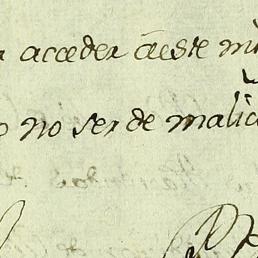 acceder à este
no ser de malic